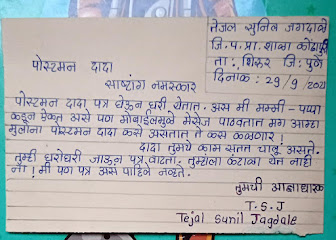 तेजल सुनिल जगदाळे
जि.प.प्रा.शाळा कोंढापुरी
ता: शिरुर जि: पुणे
दिनांक : 29/9/202
पोस्टमन दादा
साष्टांग नमस्कार
पोस्टमन दादा पत्र घेऊन घरी येतात. अस मी मम्मी - पप्पा
कडून ऐकत असे पण मोबाईलमुळे मेसेज पाठवतात मग आम्हा
मुलांना पोस्टमन दादा कसे असतात ते कस कळणार !
दादा तुमचे काम सतत चालू असते.
तुम्ही घरोघरी जाऊन पत्र वाटता. तुम्हाला कंटाळा येत नाही
ना ! मी पण पत्र अस पाहिले नव्हते.
तुमची आज्ञाधारक
T.S.J
Tejal Sunil Jagdale